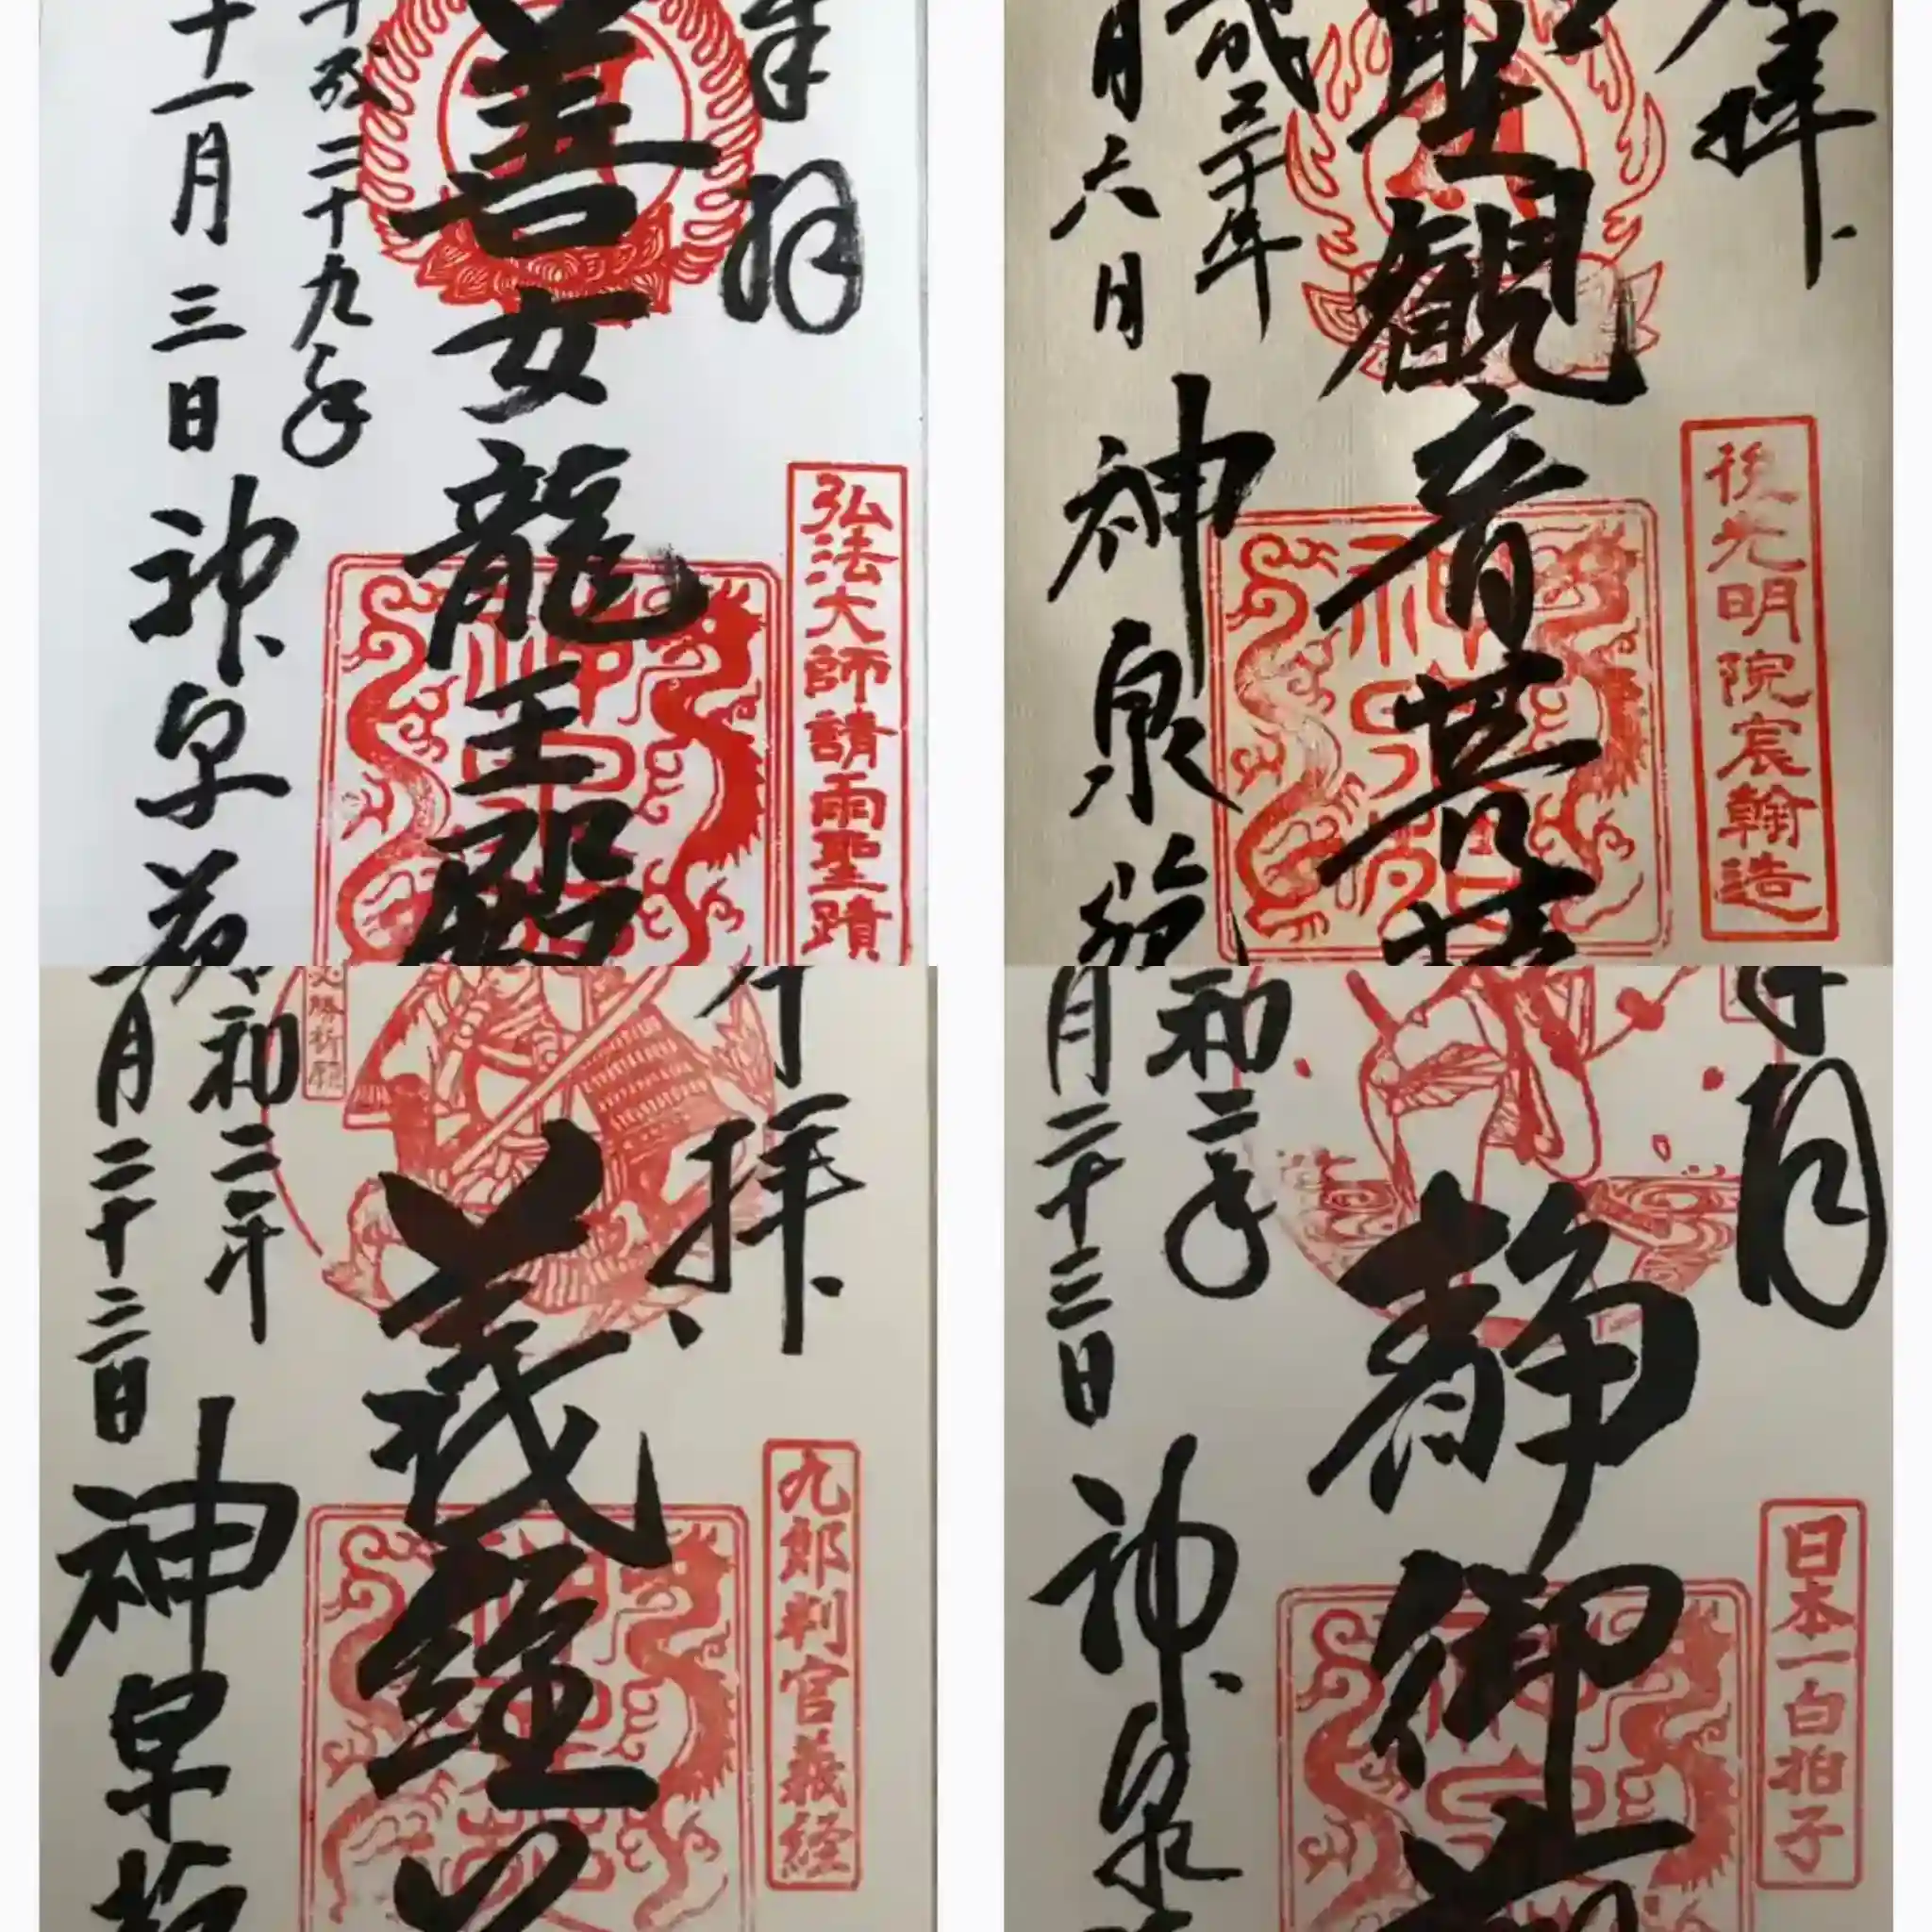 奉拝
善女龍王殿
弘法大師請雨聖蹟
平成二十九年
十一月三日
神泉苑
奉拝
聖観音菩薩
後光明院宸翰造
成三十年
月六日
神泉苑
奉拝
義経
九郎判官義経
必勝祈願
和二年
月二十三日
神泉苑
静御前
日本一白拍子
和二年
月二十三日
神泉